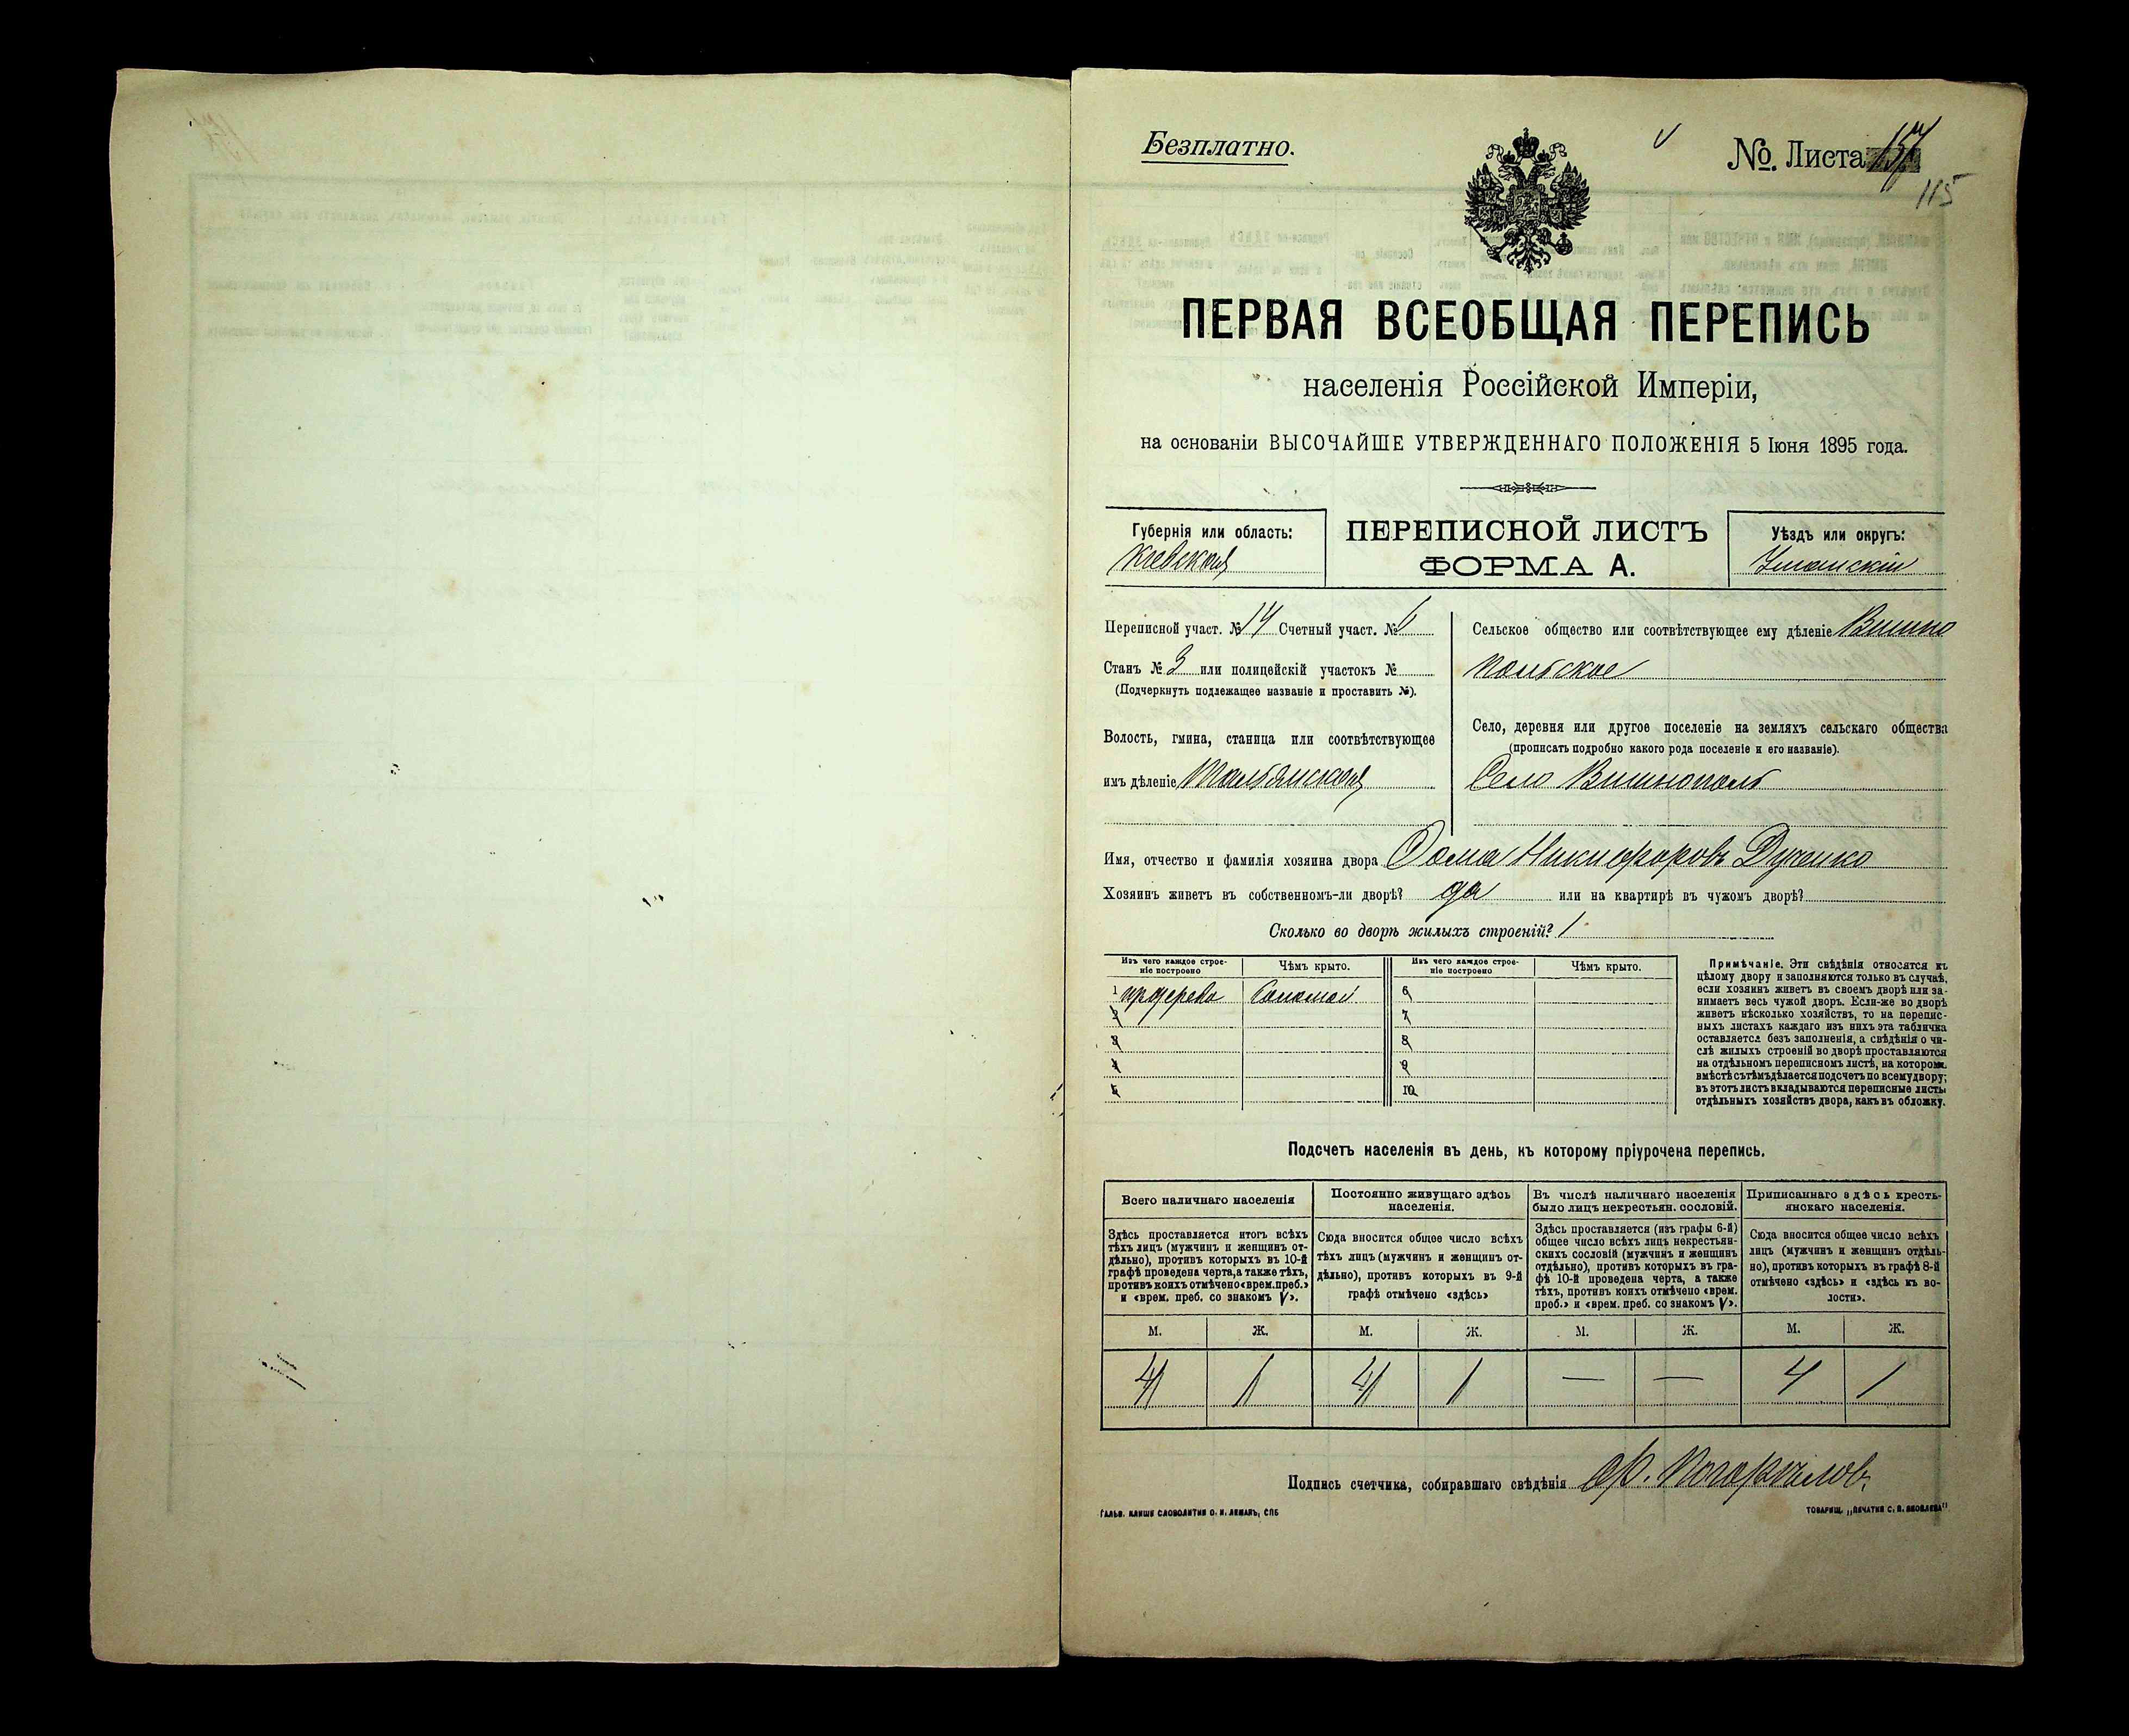 Безплатно.
№. Листа 157
115
ПЕРВАЯ ВСЕОБЩАЯ ПЕРЕПИСЬ
населенія Россійской Имперіи,
на основаніи ВЫСОЧАЙШЕ УТВЕРЖДЕННАГО ПОЛОЖЕНІЯ 5 Іюня 1895 года.
Губернія или область:
Кіевская
ПЕРЕПИСНОЙ ЛИСТЪ
ФОРМА А.
Уѣздъ или округъ:
Уманскій
Переписной участ. № 14 Счетный участ. №
Станъ № 3 или полицейскій участокъ №
(Подчеркнуть подлежащее названіе и проставить №).
Волость, гмина, станица или соотвѣтствующее
имъ дѣленіе Тальянская
Сельское общество или соотвѣтствующее ему дѣленіе Вишно
польское
Село, деревня или другое поселеніе на земляхъ сельскаго общества
(прописать подробно какого рода поселеніе и его названіе).
Село Вишнополь
Имя, отчество и фамилія хозяина двора Ѳома Никифоровъ Дученко
Хозяинъ живетъ въ собственномъ-ли дворѣ? да или на квартирѣ въ чужомъ дворѣ?
Сколько во дворѣ жилыхъ строеній? 1
Изъ чего каждое строе-
ніе построено
Чѣмъ крыто.
Изъ чего каждое строе-
ніе построено
Чѣмъ крыто.
1 из дерева Соломой 6
2 7
3 8
4 9
5 10
Примѣчаніе. Эти свѣдѣнія относятся къ
цѣлому двору и заполняются только въ случаѣ,
если хозяинъ живетъ въ своемъ дворѣ или за-
нимаетъ весь чужой дворъ. Если-же во дворѣ
живетъ нѣсколько хозяйствъ, то на перепис-
ныхъ листахъ каждаго изъ нихъ эта табличка
оставляется безъ заполненія, а свѣдѣнія о чи-
слѣ жилыхъ строеній во дворѣ проставляются
на отдѣльномъ переписномъ листѣ, на которомъ
вмѣстѣ съ тѣмъ дѣлается подсчетъ по всему двору;
въ этотъ листъ вкладываются переписные листы
отдѣльныхъ хозяйствъ двора, какъ въ обложку.
Подсчетъ населенія въ день, къ которому пріурочена перепись.
Всего наличнаго населенія
Здѣсь проставляется итогъ всѣхъ
тѣхъ лицъ (мужчинъ и женщинъ от-
дѣльно), противъ которыхъ въ 10-й
графѣ проведена черта, а также тѣхъ,
противъ коихъ отмѣчено «врем. преб.»
и «врем. преб. со знакомъ V».
Постоянно живущаго здѣсь
населенія.
Сюда вносится общее число всѣхъ
тѣхъ лицъ (мужчинъ и женщинъ от-
дѣльно), противъ которыхъ въ 9-й
графѣ отмѣчено «здѣсь»
Въ числѣ наличнаго населенія
было лицъ некрестьян. сословій.
Здѣсь проставляется (изъ графы 6-й)
общее число всѣхъ лицъ некрестьян-
скихъ сословій (мужчинъ и женщинъ
отдѣльно), противъ которыхъ въ гра-
фѣ 10-й проведена черта, а также
тѣхъ, противъ коихъ отмѣчено «врем.
преб.» и «врем. преб. со знакомъ V».
Приписаннаго здѣсь кресть-
янскаго населенія.
Сюда вносится общее число всѣхъ
лицъ (мужчинъ и женщинъ отдѣль-
но), противъ которыхъ въ графѣ 8-й
отмѣчено «здѣсь» и «здѣсь къ во-
лости».
М. Ж. М. Ж. М. Ж. М. Ж.
4 1 4 1 — — 4 1
Подпись счетчика, собиравшаго свѣдѣнія
ГАЛЬВ. КЛИШЕ СЛОВОЛИТНИ О. И. ЛЕМАНЪ, СПБ
ТОВАРИЩ. „ПЕЧАТНЯ С. П. ЯКОВЛЕВА"